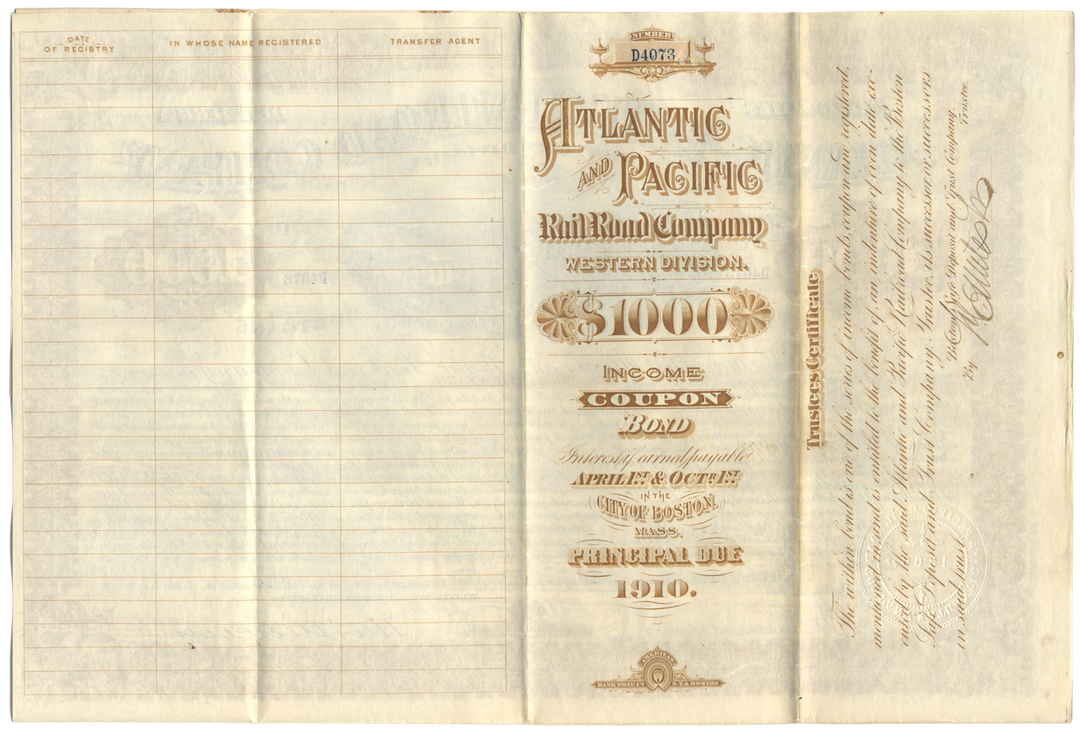 DATE
OF REGISTRY
IN WHOSE NAME REGISTERED
TRANSFER AGENT
NUMBER
D4073
ATLANTIC
AND PACIFIC
Rail Road Company
WESTERN DIVISION.
$1000
INCOME
COUPON
BOND
Interest if earned payable
APRIL 1ST & OCTR 1ST
IN THE
CITY OF BOSTON,
MASS.
PRINCIPAL DUE
1910.
AMERICAN
BANK NOTE CO. N.Y. & BOSTON
Trustees Certificate
The within bond is one of the series of income bonds, coupon and registered,
mentioned in, and is entitled to the benefit of, an indenture of even date, exe-
cuted by the said Atlantic and Pacific Railroad Company to the Boston
Safe Deposit and Trust Company, Trustee, its successor or successors
in said trust.
The Boston Safe Deposit and Trust Company,
Trustee.
By